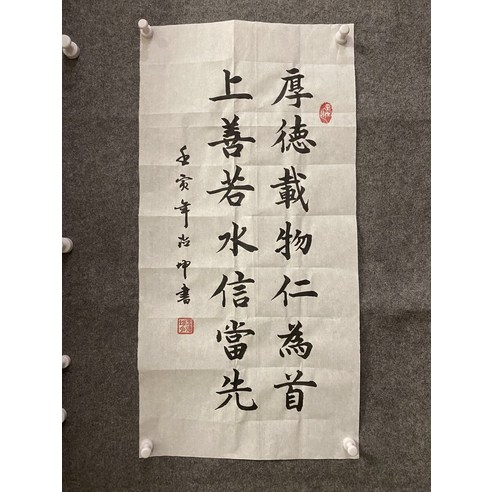 厚德載物仁為首
上善若水信當先
壬寅年尚坤書